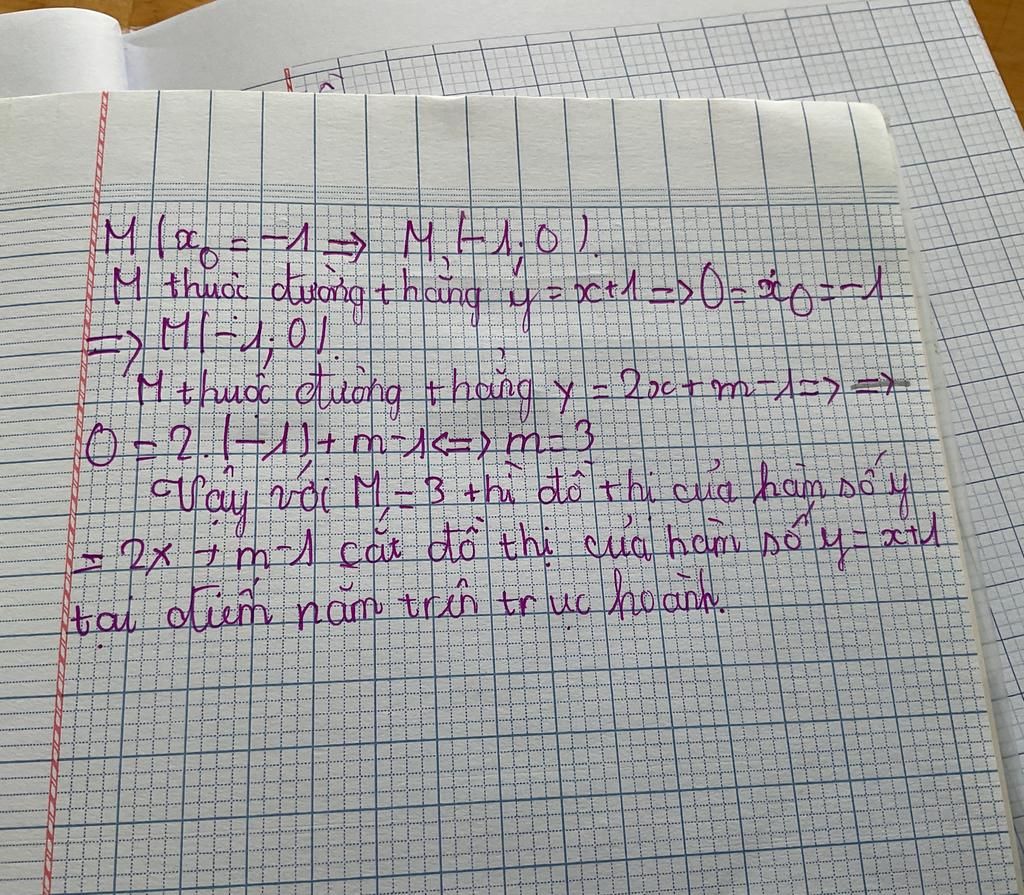 M(x₀ = -1 => M(-1; 0).
M thuộc đường thẳng y = x+1 => 0 = x₀ = -1
=> M(-1; 0).
M thuộc đường thẳng y = 2x + m - 1 => =>
0 = 2.(-1) + m - 1 <=> m = 3
Vậy với M = 3 thì đồ thị của hàm số y
= 2x + m - 1 cắt đồ thị của hàm số y = x+1
tại điểm nằm trên trục hoành.